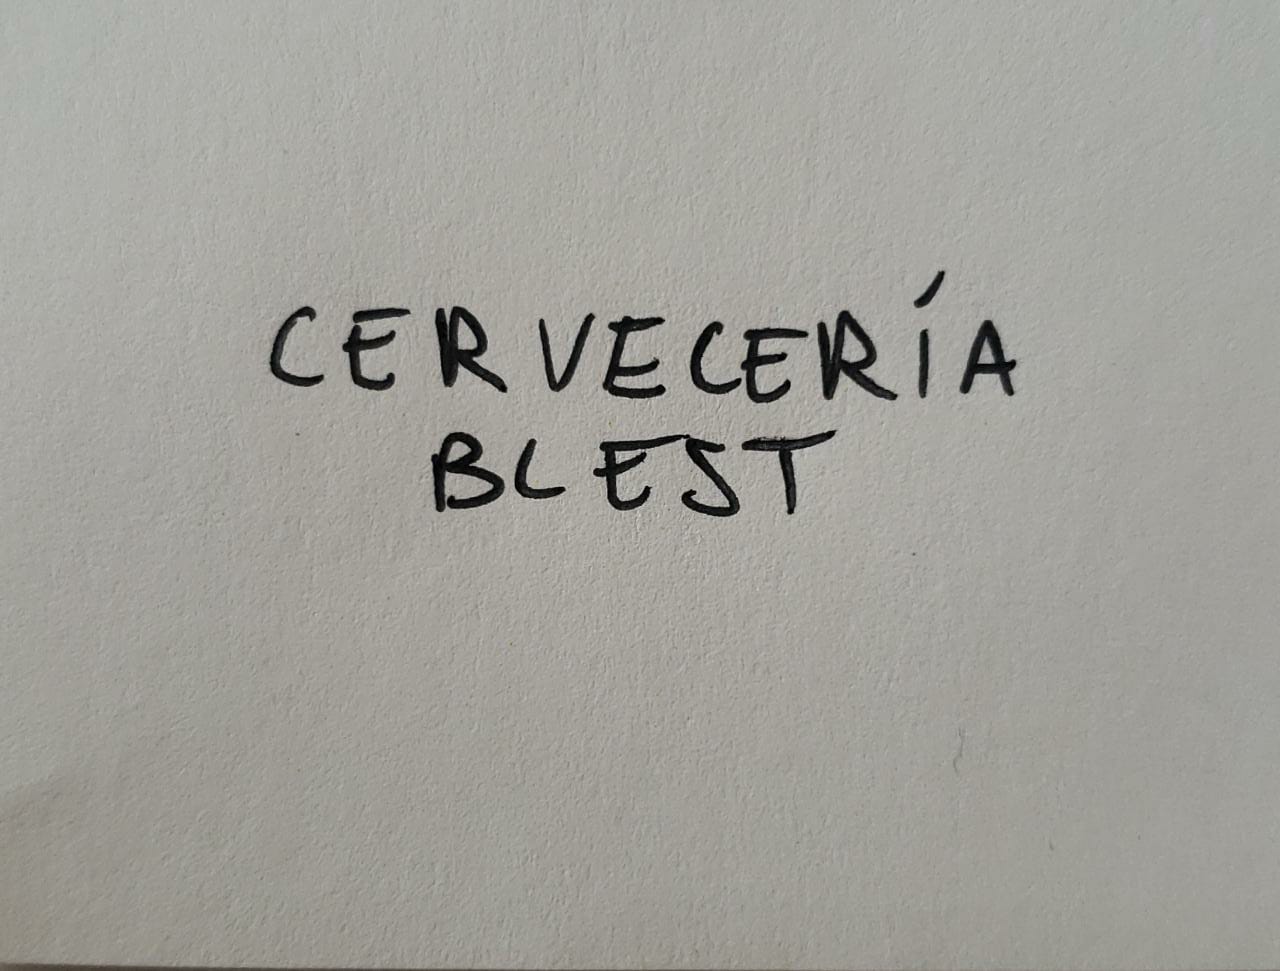 CERVECERÍA
BLEST